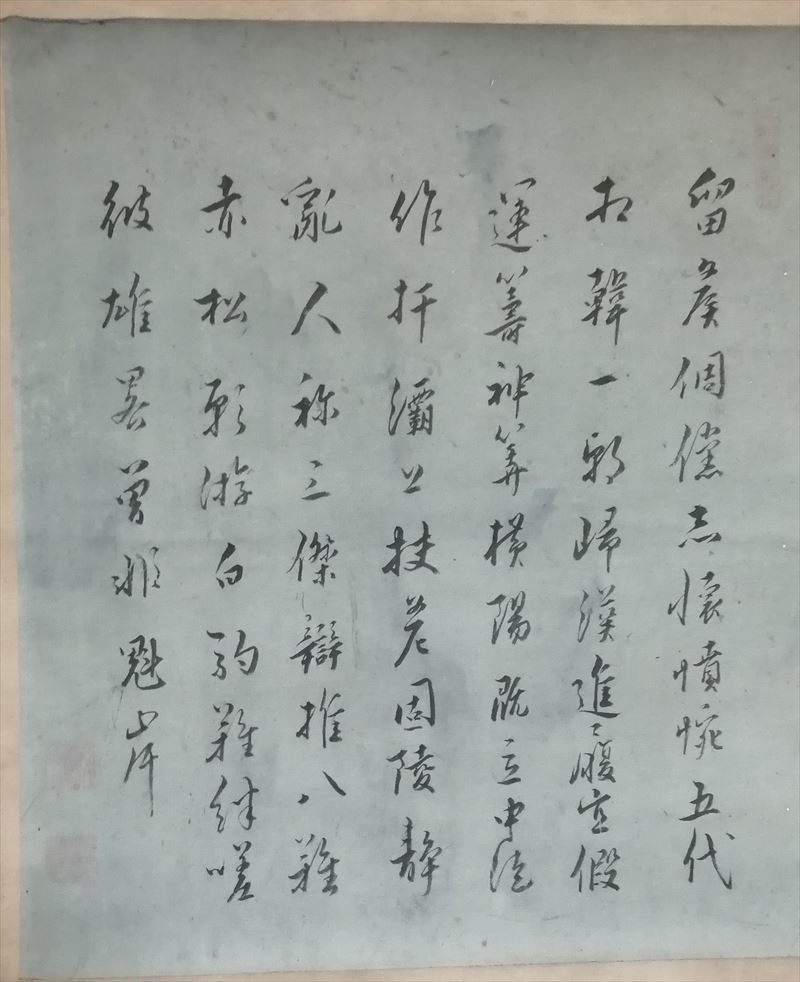 留侯倜儻志懷憤惋五代
相韓一朝歸漢進履宜假
運籌神筭橫陽既立申徒
作扞灞上扶危固陵静
亂人称三傑辯推八難
赤松願游白駒難絆嗟
彼雄畧曾非魁岸